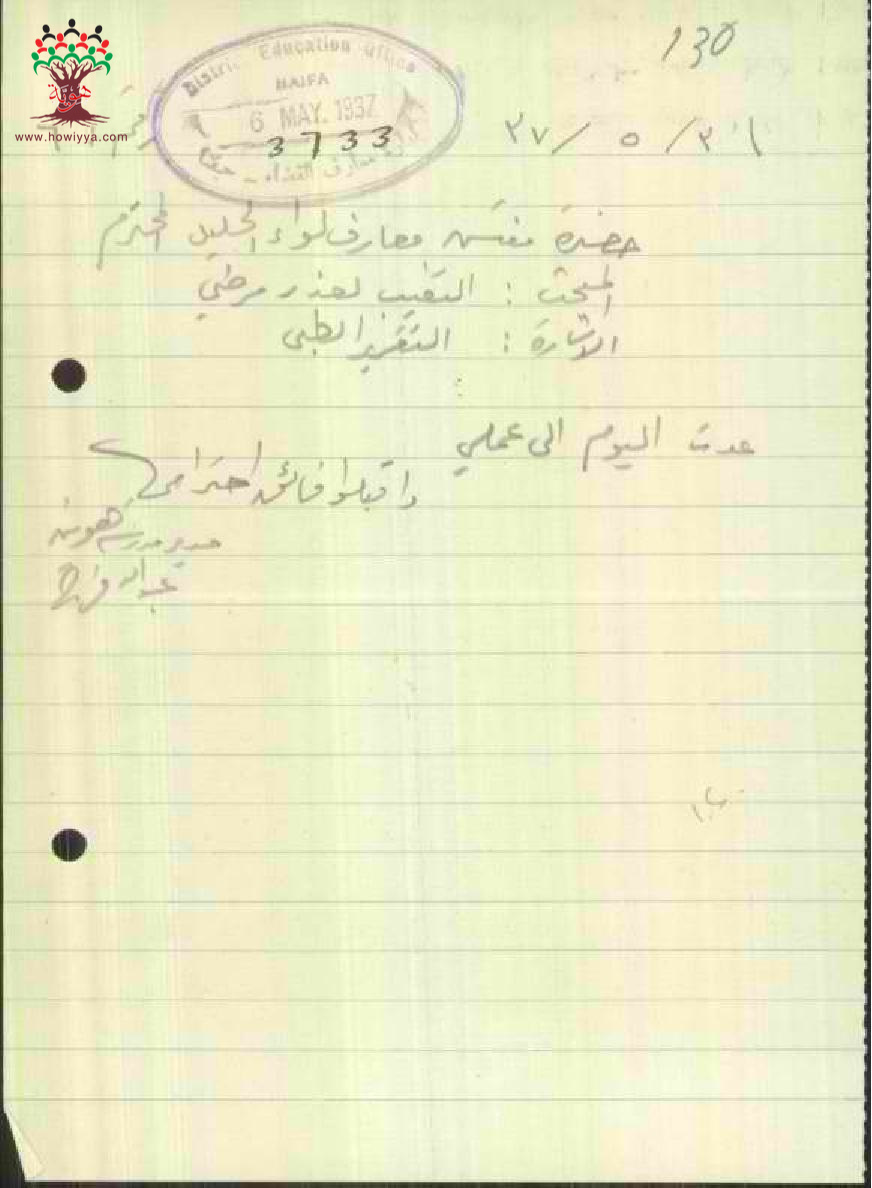 130
هوية
www.howiyya.com
District Education Office
HAIFA
6 MAY. 1937
3733
٣٧ / ٥ / ٣
حضرة مفتش معارف لواء الجليل المحترم
المبحث : التغيب لعذر مرضي
الاشارة : التقرير الطبي
عدت اليوم الى عملي
واقبلوا فائق احترامي
مدير مدرسة هونين